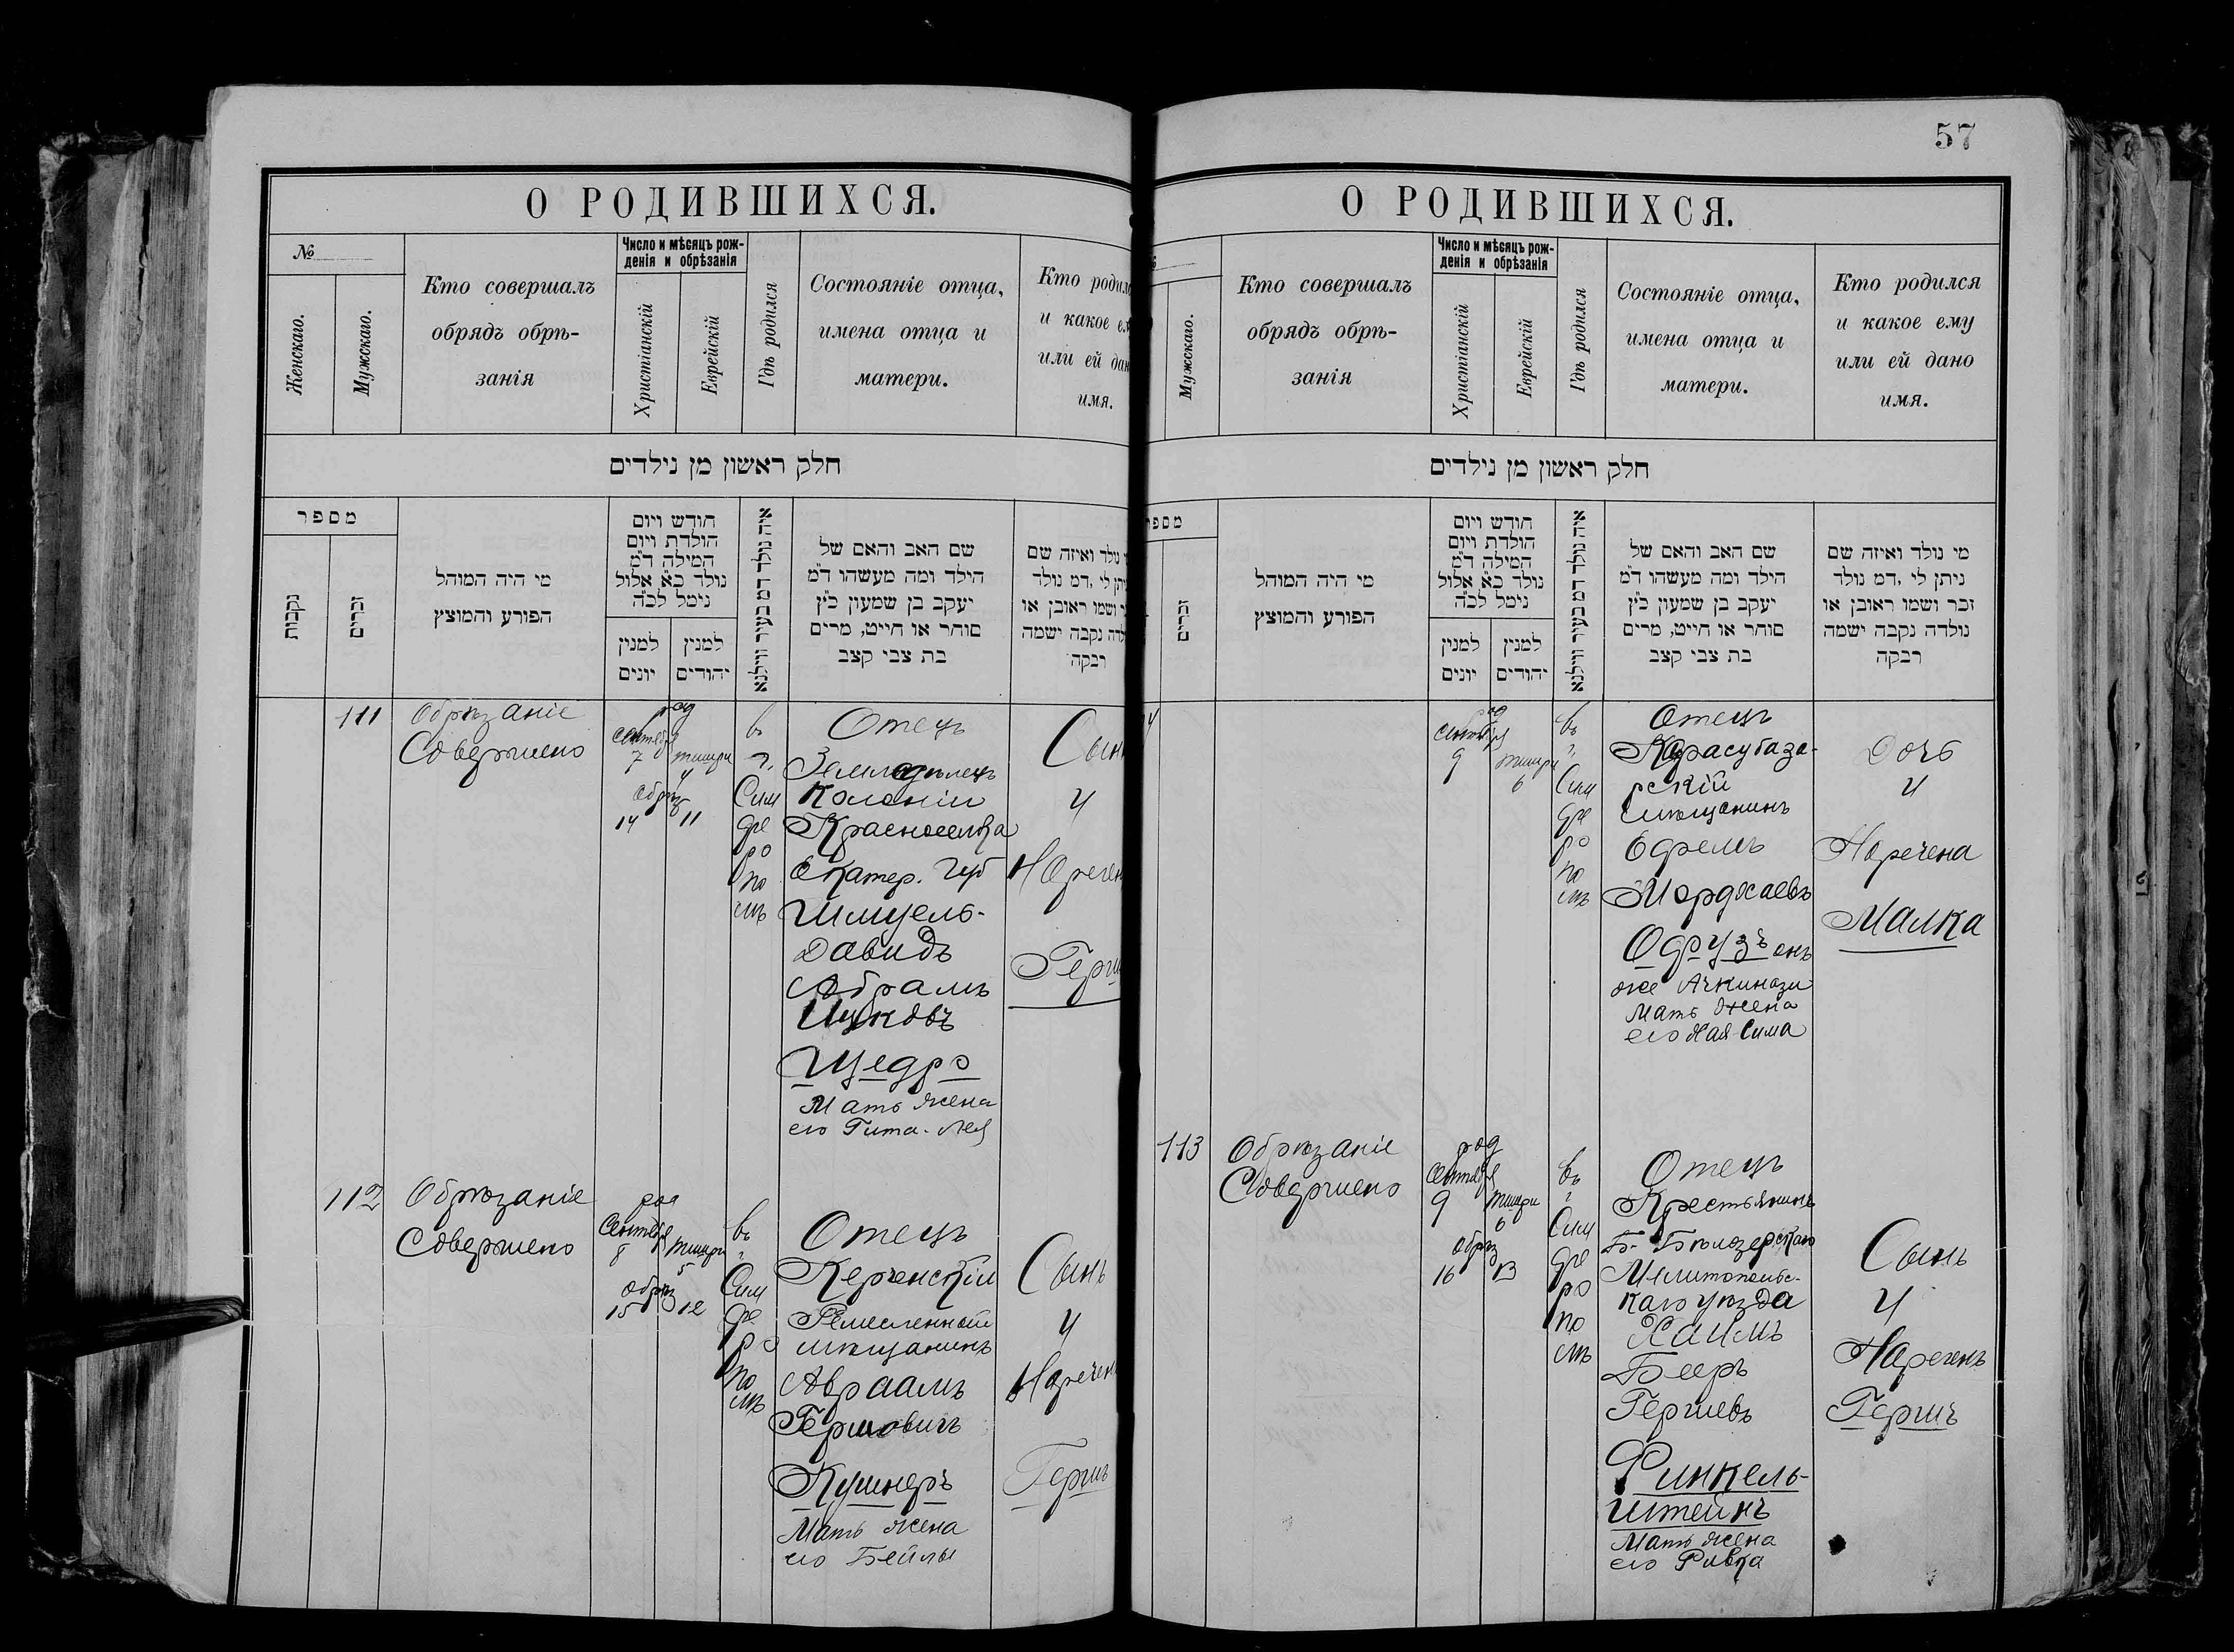 О РОДИВШИХСЯ.
№
Женскаго.
Мужскаго.
Кто совершалъ
обрядъ обрѣ-
занія
Число и мѣсяцъ рож-
денія и обрѣзанія
Христіанскій
Еврейскій
Гдѣ родился
Состояніе отца,
имена отца и
матери.
Кто родил
и какое ем
или ей дан
имя.
חלק ראשון מן נילדים
מספר
נקבות
זכרים
מי היה המוהל
הפורע והמוצץ
חודש ויום
הולדת ויום
המילה ד״מ
נולד כ״א אלול
נימל לכ״ה
למנין
יונים
למנין
יהודים
איה נולד דמ בעיר ווילנא
שם האב והאם של
הילד ומה מעשהו ד״מ
יעקב בן שמעון כ״ץ
סוחר או חייט, מרים
בת צבי קצב
נולד ואיזה שם
יתן לי ,דמ נולד
ושמו ראובן או
לדה נקבה ישמה
רבקה
111
Обрѣзаніе
Совершено
род
Сентября
7
тишри
4
обрѣз
14 11
въ
г.
Сим
фе
ро
по
лѣ
Отецъ
Земледѣлецъ
Колоніи
Красноселка
Екатер. Губ
Шмуель-
Давидъ
Абрамъ
Ицковъ
Щедро
Мать жена
его Гита-Лея
Сын
И
Наречен
Герш
112
Обрѣзаніе
Совершено
род
Сентября
8
тишри
5
обрѣз
15 12
въ
г.
Сим
фе
ро
по
лѣ
Отецъ
Керченскій
Ремесленный
мѣщанинъ
Авраамъ
Гершовичъ
Кушнеръ
Мать жена
его Бейлы
Сынъ
И
Наречен
Гершъ
57
О РОДИВШИХСЯ.
Мужскаго.
Кто совершалъ
обрядъ обрѣ-
занія
Число и мѣсяцъ рож-
денія и обрѣзанія
Христіанскій
Еврейскій
Гдѣ родился
Состояніе отца,
имена отца и
матери.
Кто родился
и какое ему
или ей дано
имя.
חלק ראשון מן נילדים
מספר
זכרים
מי היה המוהל
הפורע והמוצץ
חודש ויום
הולדת ויום
המילה ד״מ
נולד כ״א אלול
נימל לכ״ה
למנין
יונים
למנין
יהודים
איה נולד דמ בעיר ווילנא
שם האב והאם של
הילד ומה מעשהו ד״מ
יעקב בן שמעון כ״ץ
סוחר או חייט, מרים
בת צבי קצב
מי נולד ואיזה שם
ניתן לי ,דמ נולד
זכר ושמו ראובן או
נולדה נקבה ישמה
רבקה
род
Сентября
9
тишри
6
въ
г.
Сим
фе
ро
по
лѣ
Отецъ
Карасубаза-
рскій
мѣщанинъ
Ефремъ
Мордхаевъ
Одрузъ онъ
же Ачкинази
Мать жена
его Хая-Сима
Дочь
И
Наречена
Малка
113
Обрѣзаніе
Совершено
род
Сентября
9
тишри
6
обрѣз
16 13
въ
г.
Сим
фе
ро
по
лѣ
Отецъ
Крестьянинъ
Б-Бѣлозерскаго
Мелитопольс-
каго уѣзда
Хаимъ
Беръ
Гершевъ
Финкель-
штейнъ
Мать жена
его Ривка
Сынъ
И
Нареченъ
Гершъ